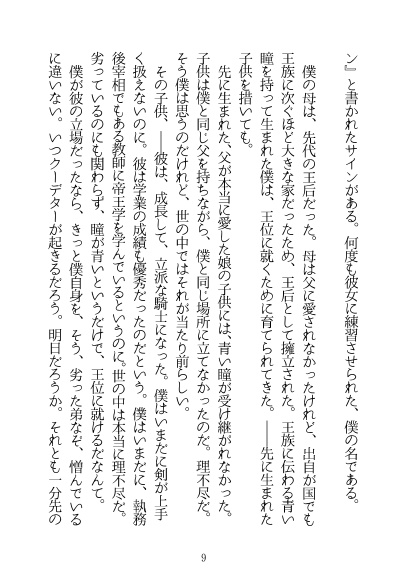 ン』と書かれたサインがある。何度も彼女に練習させられた、僕の名である。
　僕の母は、先代の王后だった。母は父に愛されなかったけれど、出自が国でも
王族に次ぐほど大きな家だったため、王后として擁立された。王族に伝わる青い
瞳を持って生まれた僕は、王位に就くために育てられてきた。――先に生まれた
子供を措いても。
　先に生まれた、父が本当に愛した娘の子供には、青い瞳が受け継がれなかった。
子供は僕と同じ父を持ちながら、僕と同じ場所に立てなかったのだ。理不尽だ。
そう僕は思うのだけれど、世の中ではそれが当たり前らしい。
　その子供、――彼は、成長して、立派な騎士になった。僕はいまだに剣が上手
く扱えないのに。彼は学業の成績も優秀だったのだという。僕はいまだに、執務
後宰相でもある教師に帝王学を学んでいるというのに。世の中は本当に理不尽だ。
劣っているのにも関わらず、瞳が青いというだけで、王位に就けるだなんて。
　僕が彼の立場だったなら、きっと僕自身を、そう、劣った弟なぞ、憎んでいる
に違いない。いつクーデターが起きるだろう。明日だろうか。それとも一分先の
9